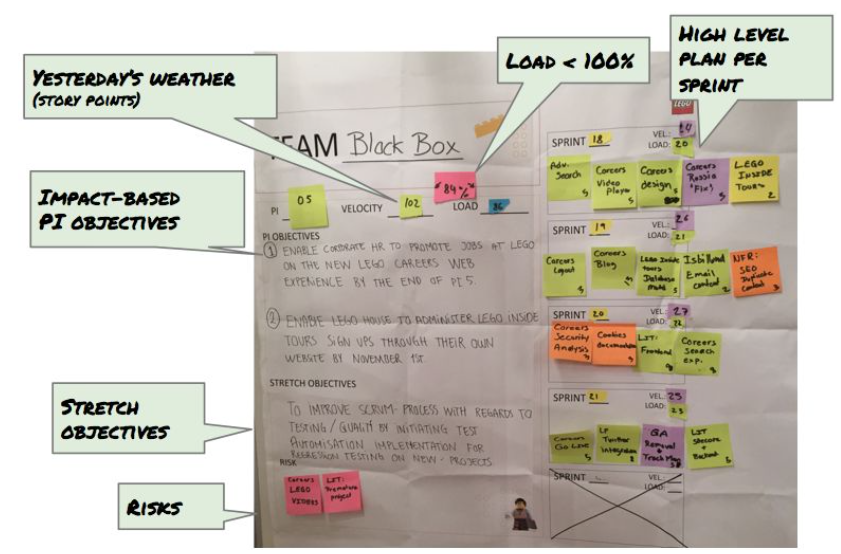 YESTERDAY'S WEATHER
(STORY POINTS)
LOAD < 100%
HIGH LEVEL
PLAN PER
SPRINT
IMPACT-BASED
PI OBJECTIVES
STRETCH
OBJECTIVES
RISKS
TEAM Black Box
PI 05 VELOCITY 102 LOAD 86
84%
PI OBJECTIVES
1 ENABLE CORPORATE HR TO PROMOTE JOBS AT LEGO
ON THE NEW LEGO CAREERS WEB
EXPERIENCE BY THE END OF PI 5.
2 ENABLE LEGO HOUSE TO ADMINISTER LEGO INSIDE
TOURS SIGN UPS THROUGH THEIR OWN
WEBSITE BY NOVEMBER 1ST.
STRETCH OBJECTIVES
TO IMPROVE SCRUM-PROCESS WITH REGARDS TO
TESTING/QUALITY BY INITIATING TEST
AUTOMISATION IMPLEMENTATION FOR
REGRESSION TESTING ON NEW-PROJECTS
RISK
Careers
LEGO
VIDEOS
LIT:
Premature
project
LEGO
SPRINT 18 VEL.: 24
LOAD: 20
Adv.
Search
5
Careers
Video
Player
5
Careers
design
5
Careers
Russia
5
LEGO
INSIDE
TOURS
2
SPRINT 19 VEL.: 26
LOAD: 21
Careers
Layout
5
Careers
Blog
LEGO Inside
tours
Database
5
Email
content
2
NFR:
SEO
Duplicate
Content
3
SPRINT 20 VEL.: 27
LOAD: 22
Careers
Security
Analysis
Cookies
documentation
LIT:
Frontend
8
Careers
Search
exp.
8
SPRINT 21 VEL.: 25
LOAD: 23
Careers
Go-Live
5
LP
Twitter
Integration
8
QA
Removal
+
Track Man
LIT
Sitecore
+
Backend
5
SPRINT VEL.:
LOAD: